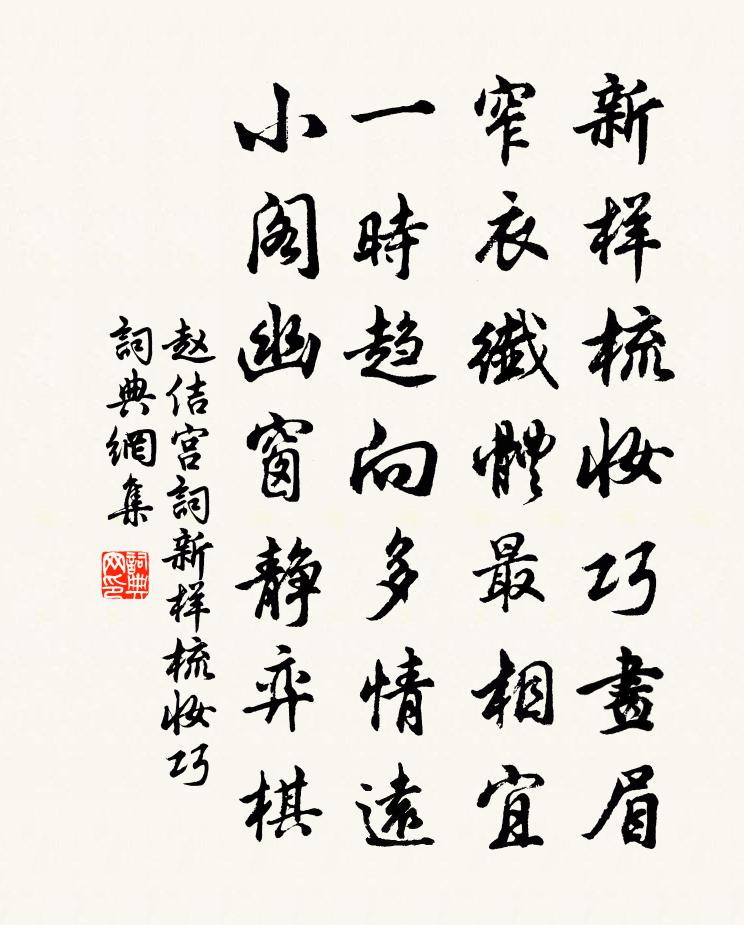 新样梳妆巧畫眉
窄衣纖體最相宜
一時趋向多情遠
小阁幽窗静弈棋
赵佶宫詞新样梳妆巧
詞典網集
詞典
网印